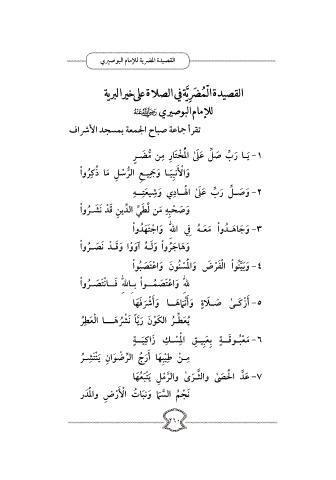 القصيدة المضرية للإمام البوصيري
القصيدة الْمُضَرِيَّة في الصلاة على خير البرية
للإمام البوصيري
تقرأ جماعة صباح الجمعة بمسجد الأشراف
١- يَا رَبِّ صَلِّ عَلَىٰ الْمُخْتَارِ مِن مُضَرٍ
وَالْأَنْبِيَا وَجَمِيعِ الرُّسْلِ مَا ذُكِرُواْ
٢- وَصَلِّ رَبِّ عَلَىٰ الْهَادِي وَشِيعَتِهِ
وَصَحْبِهِ مَن لِطَيِّ الدِّينِ قَدْ نَشَرُواْ
٣- وَجَاهَدُواْ مَعَهُ فِي اللهِ وَاجْتَهَدُواْ
وَهَاجَرُواْ وَلَهُ آوَوْا وَقَدْ نَصَرُواْ
٤- وَبَيَّنُواْ الْفَرْضَ وَالْمَسْنُونَ وَاعْتَصَبُواْ
لِلهِ وَاعْتَصَمُواْ بِاللهِ فَانْتَصَرُواْ
٥- أَزْكَىٰ صَلَاةٍ وَأَنْمَاهَا وَأَشْرَفَهَا
يُعَطِّرُ الْكَوْنَ رَيَّا نَشْرِهَا الْعَطِرُ
٦- مَعْبُوقَةً بِعَبِيقِ الْمِسْكِ زَاكِيَةً
مِنْ طِيبِهَا أَرَجُ الرِّضْوَانِ يَنْتَشِرُ
٧- عَدَّ الْحَصَىٰ وَالثَّرَىٰ وَالرَّمْلِ يَتْبَعُهَا
نَجْمُ السَّمَا وَنَبَاتُ الْأَرْضِ وَالْمَدَرُ
٢٦٠